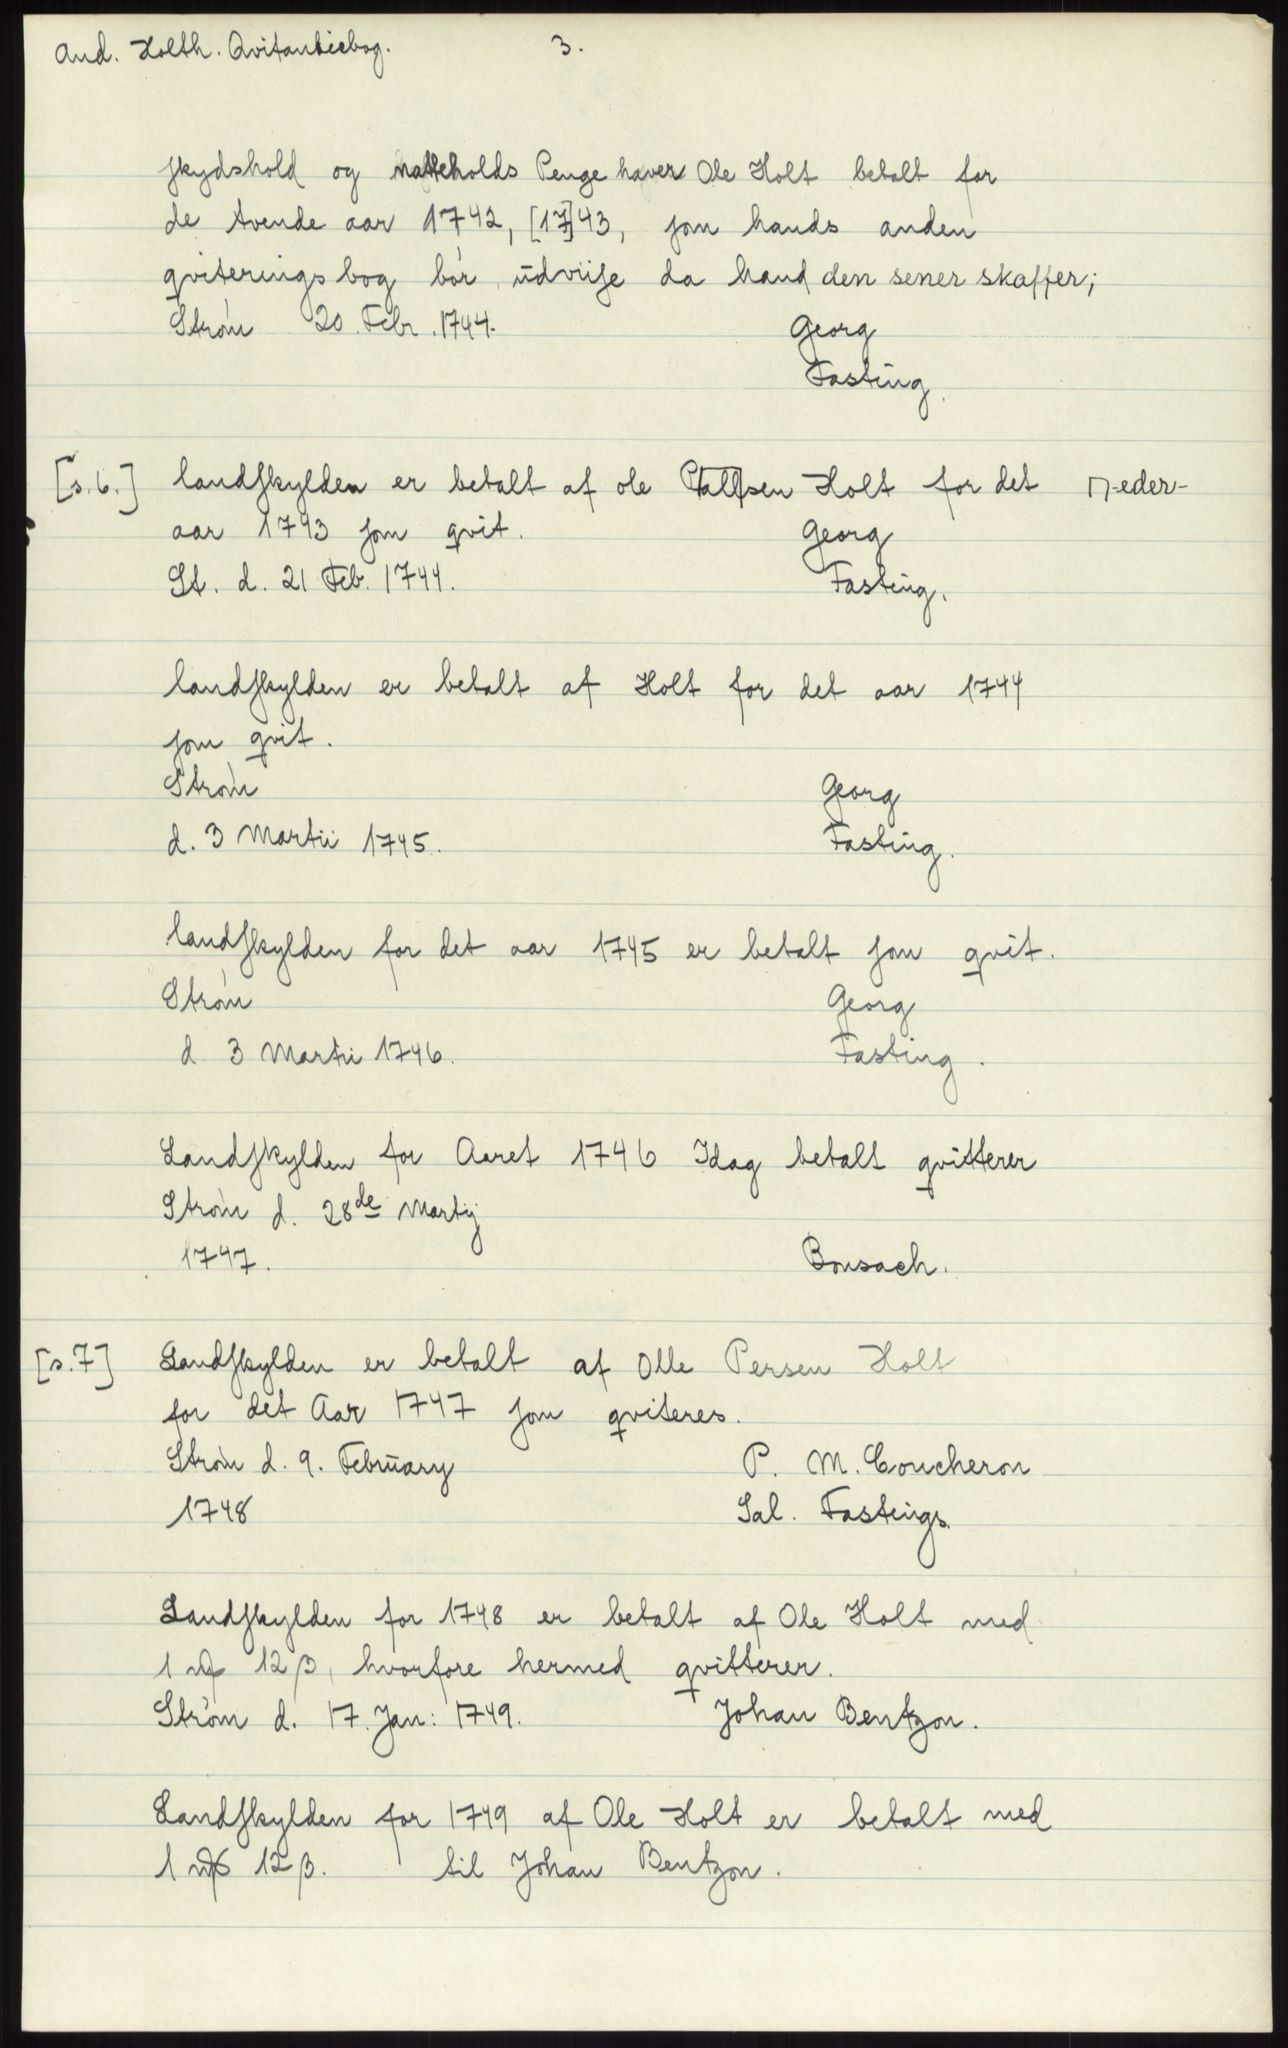 And. Holth. Qvitantiebog. 3.
skydshold og natteholds Penge haver Ole Holt betalt for
de tvende aar 1742, [17]43, som hands anden
qviterings bog bør udviise da hand den sener skaffer;
Strøm 20. Febr. 1744. Georg
Fasting.
[s.6.] landskylden er betalt af ole Pallsen Holt for det ⊓-eder-
aar 1743 som qvit. Georg
St. d. 21 Feb. 1744. Fasting.
landskylden er betalt af Holt for det aar 1744
som qvit.
Strøm Georg
d. 3 Martii 1745. Fasting.
landskylden for det aar 1745 er betalt som qvit.
Strøm Georg
d 3 Martii 1746. Fasting.
Landskylden for Aaret 1746 Idag betalt qvitterer
Strøm d. 28de Martij
1747. Bonsach.
[s.7] Landskylden er betalt af Olle Persen Holt
for det Aar 1747 som qviteres.
Strøm d. 9. February P. M. Coucheron
1748 Sal. Fastings
Landskylden for 1748 er betalt af Ole Holt med
1 rdr 12 β, hvorfore hermed qvitterer.
Strøm d. 17. Jan: 1749. Johan Bentzon.
Landskylden for 1749 af Ole Holt er betalt med
1 rdr 12 β. til Johan Bentzon.